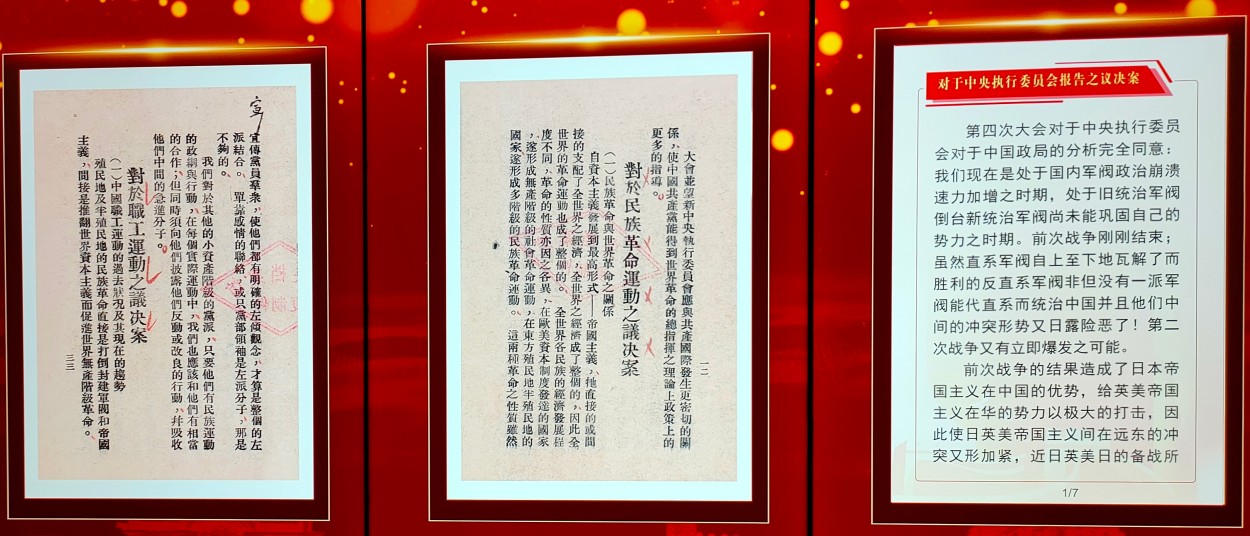 宣
宣傳黨員羣衆,使他們都有明確的左傾觀念,才算是整個的左
派結合。單靠感情的聯絡,或只黨部領袖是左派分子,那是
不夠的。
我們對於其他的小資產階級的黨派,只要他們有民族運動
的政綱與行動,在每個實際運動中,我們也應該和他們有相當
的合作;但同時須向他們披露他們反動或改良的行動,幷吸收
他們中間的急進分子。
對於職工運動之議决案
(一)中國職工運動的過去狀况及其現在的趨勢
殖民地及半殖民地的民族革命直接是打倒封建軍閥和帝國
主義,間接是推翻世界資本主義而促進世界無產階級革命。
三三
大會並望新中央執行委員會應與共產國際發生更密切的關
係,使中國共產黨能得到世界革命的總指揮之理論上政策上的
更多的指導。
對於民族革命運動之議决案
(一)民族革命與世界革命之關係
自資本主義發展到最高形式——帝國主義,他直接的或間
接的支配了全世界之經濟,全世界之經濟成了整個的,因此全
世界的革命運動也成了整個的。全世界各民族的經濟發展程
度不同,革命的性質亦因之各異,在歐美資本制度發達的國家
,遂形成無產階級的社會革命運動,在東方殖民地半殖民地的
國家遂形成多階級的民族革命運動。這兩種革命之性質雖然
一二
对于中央执行委员会报告之议决案
第四次大会对于中央执行委员
会对于中国政局的分析完全同意:
我们现在是处于国内军阀政治崩溃
速力加增之时期,处于旧统治军阀
倒台新统治军阀尚未能巩固自己的
势力之时期。前次战争刚刚结束;
虽然直系军阀自上至下地瓦解了而
胜利的反直系军阀非但没有一派军
阀能代直系而统治中国并且他们中
间的冲突形势又日露险恶了!第二
次战争又有立即爆发之可能。
前次战争的结果造成了日本帝
国主义在中国的优势,给英美帝国
主义在华的势力以极大的打击,因
此使日英美帝国主义间在远东的冲
突又形加紧,近日英美日的备战所
1/7